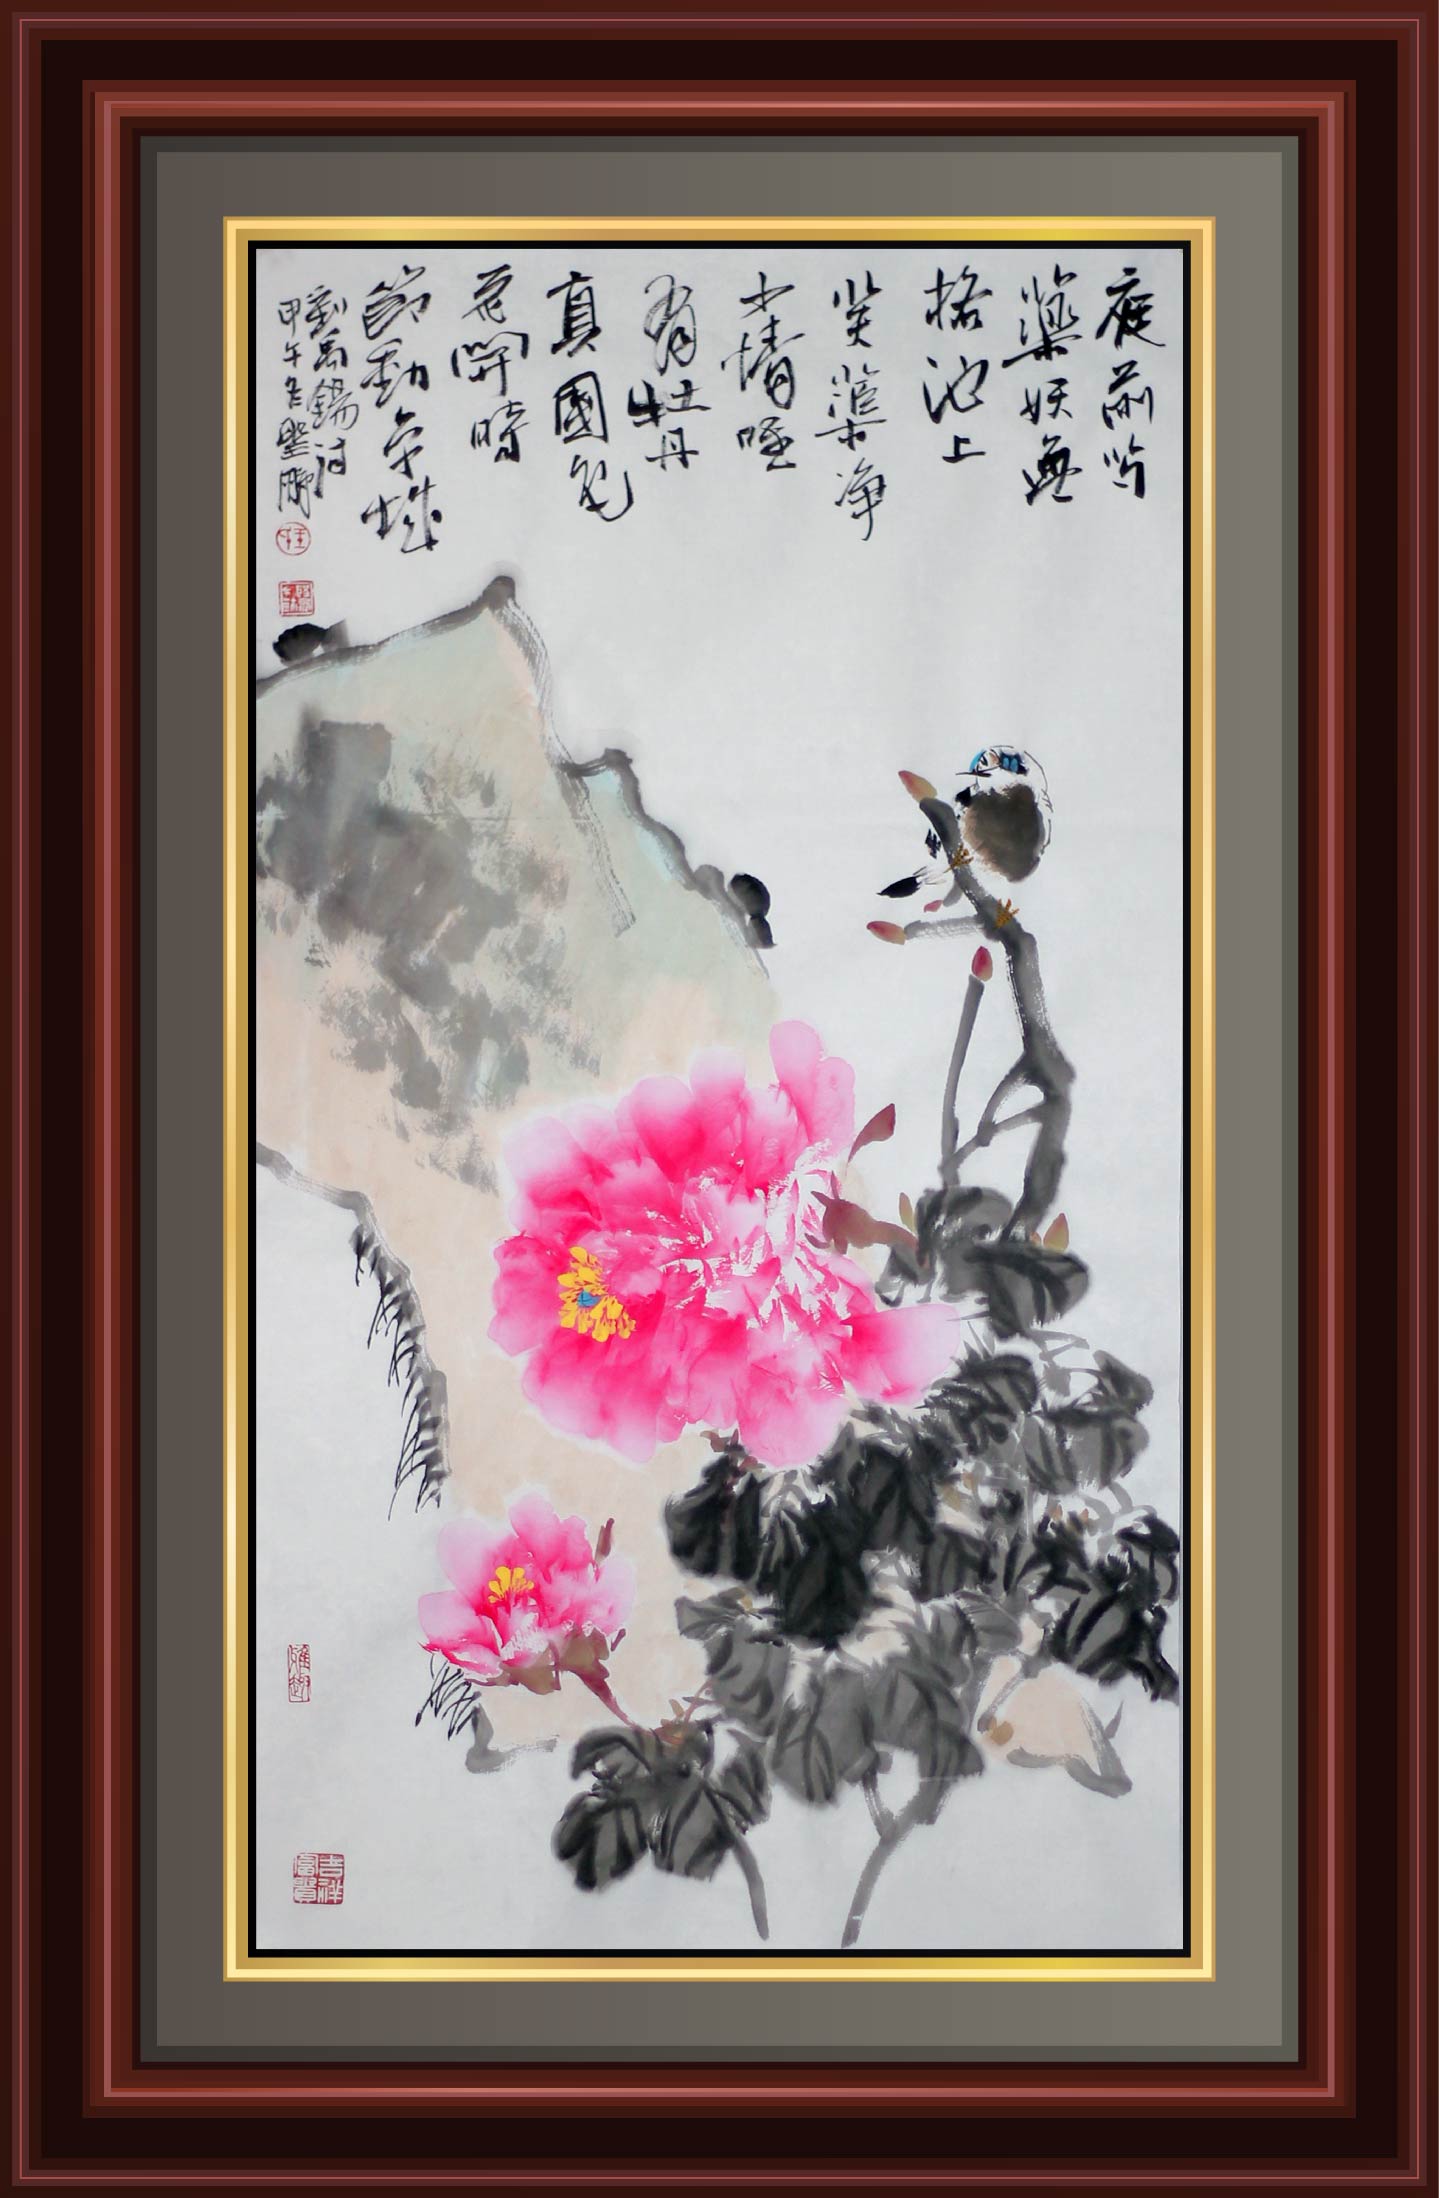 庭前芍
藥妖無
格池上
芙蕖净
少情唯
有牡丹
真國色
花開時
節動京城
劉禹錫詩
甲午冬聖鵬
吉祥
富貴